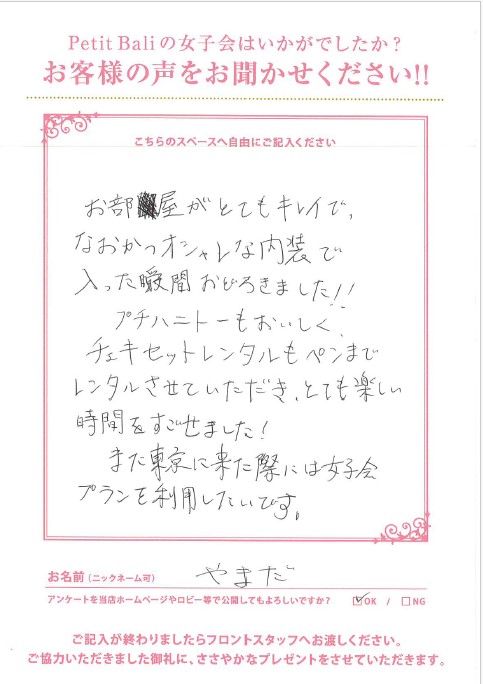 Petit Baliの女子会はいかがでしたか?
お客様の声をお聞かせください!!
こちらのスペースへ自由にご記入ください
お部屋がとてもキレイで、
なおかつオシャレな内装で
入った瞬間おどろきました!!
プチハニトーもおいしく、
チェキセットレンタルもペンまで
レンタルさせていただき、とても楽しい
時間をすごせました!
また東京に来た際には女子会
プランを利用したいです。
お名前(ニックネーム可) やまだ
アンケートを当店ホームページやロビー等で公開してもよろしいですか? ☑OK / □NG
ご記入が終わりましたらフロントスタッフへお渡しください。
ご協力いただきました御礼に、ささやかなプレゼントをさせていただきます。